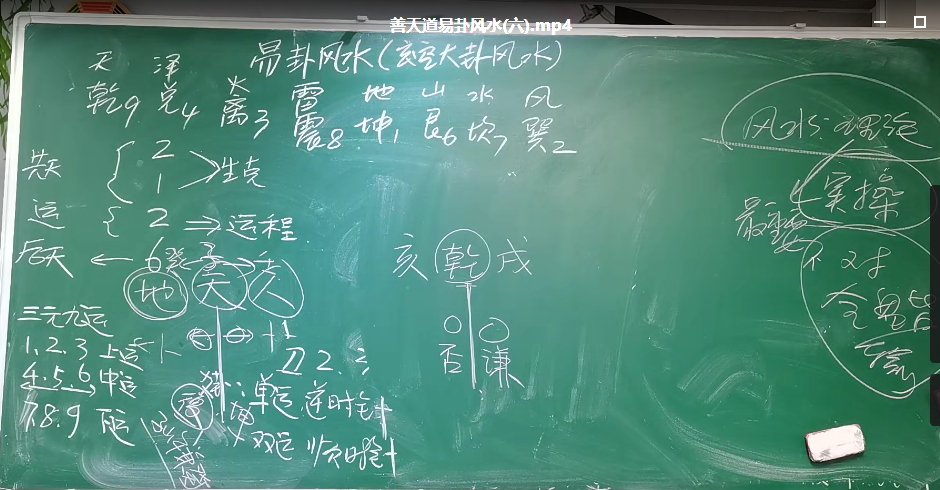 善天道易卦风水(六).mp4
易卦风水(玄空大卦风水)
天 泽 火 雷 地 山 水 风
乾9 兑4 离3 震8 坤1 艮6 坎7 巽2
先天 { 2 1 生克
运 { 2 ⇒ 运程
后天 ← 6 癸 子
地 天 人
三元九运
1、2、3 上运
4、5、6、中运
7.8.9
1 2、3
单运 逆时针
双运 顺时针
亥 乾 戌
否 谦
风水理论
实操
最重要
对
全盘皆